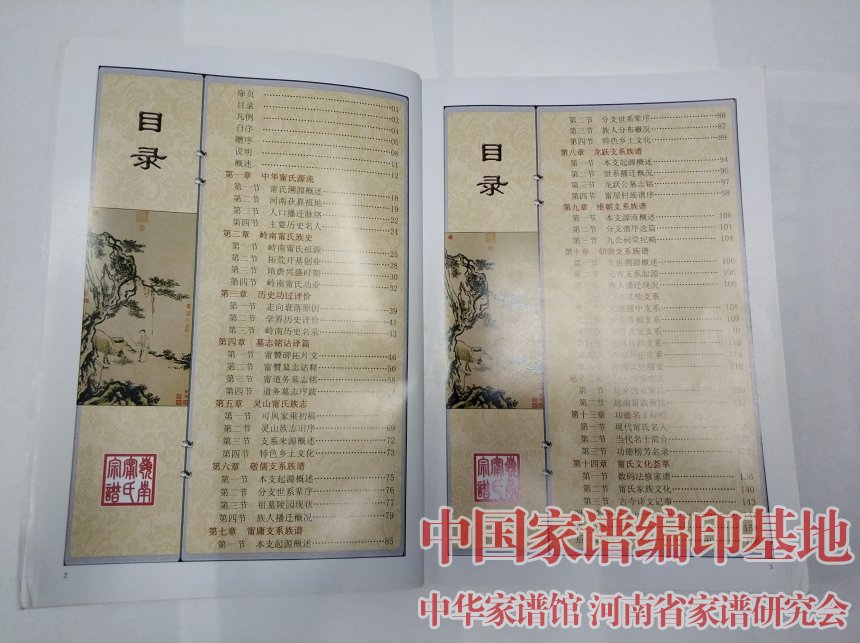 目录
扉页
目录 03
凡例 04
自序 05
赠序 06
说明 08
概述 11
第一章 中华甯氏源流 12
第一节 甯氏溯源概述
第二节 河南获嘉祖地 18
第三节 人口播迁脉络 19
第四节 主要历史名人 22
第二章 岭南甯氏族史 24
第一节 岭南甯氏祖源
第二节 拓荒开基创业 25
第三节 隋唐兴盛时期 28
第四节 岭南甯氏功业 30
第三章 历史功过评价 32
第一节 走向衰落原因
第二节 学界历史评价 39
第三节 岭南历史名录 41
第四章 墓志铭诂译篇 43
第一节 甯贙碑拓片文
第二节 甯贙墓志诂释 46
第三节 甯道务墓志铭 50
第四节 道务墓志序跋 58
第五章 灵山甯氏族志
第一节 可风家乘初稿
第二节 灵山族志旧序 69
第三节 支系来源概述 72
第四节 特色乡土文化 73
第六章 敬儒支系族谱
第一节 本支起源概述 75
第二节 分支世系辈序 76
第三节 祖墓陵园现状 77
第四节 族人播迁概况 79
第七章 甯庸支系族谱
第一节 本支起源概述 85
嶺南甯氏宗譜
2
目录
第二节 分支世系辈序 86
第三节 族人分布概况 87
第四节 特色乡土文化 89
第八章 龙跃支系族谱
第一节 本支起源概述 94
第二节 世系播迁概况 95
第三节 龙跃公墓志铭 97
第四节 甯屋村族谱序 98
第九章 维朝支系族谱
第一节 本支源流概述 100
第二节 分支谱序选篇 101
第三节 九公祠堂纪略 104
第十章 朝勋支系族谱
第一节 先祖溯源概述 106
第二节 支系起源 106
第三节 族人播迁现况 106
其他支系
108
109
112
第十二
越南甯族
第十三章 功德名士
第一节 现代甯氏名人
第二节 当代名士简介
第三节 功德榜芳名录
第十四章 甯氏文化荟萃
第一节 数码法修家谱 136
第二节 甯氏家族文化 140
第三节 古今诗文记事 143
嶺南甯氏宗譜
3
中国家谱编印基地
中华家谱馆 河南省家谱研究会